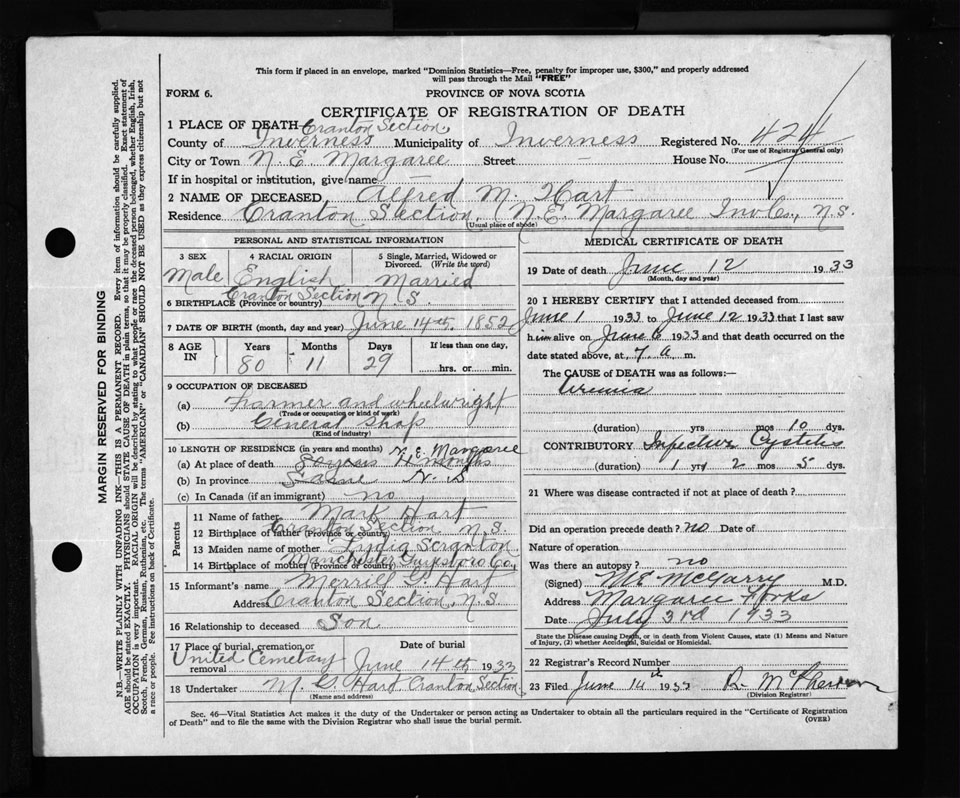 This form if placed in an envelope, marked "Dominion Statistics—Free, penalty for improper use, $300," and properly addressed
will pass through the Mail "FREE"
FORM 6. PROVINCE OF NOVA SCOTIA
CERTIFICATE OF REGISTRATION OF DEATH
1 PLACE OF DEATH Cranton Section,
County of Inverness Municipality of Inverness Registered No. 424
(For use of Registrar General only)
City or Town N. E. Margaree Street — House No.
If in hospital or institution, give name —
2 NAME OF DECEASED Alfred M. Hart
Residence Cranton Section, N.E. Margaree Inv Co., N.S.
(Usual place of abode)
PERSONAL AND STATISTICAL INFORMATION
3 SEX 4 RACIAL ORIGIN 5 Single, Married, Widowed or
Divorced. (Write the word)
Male English Married
Cranton Section N S.
6 BIRTHPLACE (Province or country)
7 DATE OF BIRTH (month, day and year) June 14th. 1852
8 AGE IN Years Months Days If less than one day,
80 11 29 hrs. or min.
9 OCCUPATION OF DECEASED
(a) Farmer and wheelwright
(Trade or occupation or kind of work)
(b) General Shop
(Kind of industry)
10 LENGTH OF RESIDENCE (in years and months) N. E. Margaree
(a) At place of death 80 years 11 months
(b) In province Same N. S
(c) In Canada (if an immigrant) no
Parents
11 Name of father Mark Hart
Cranton Section N. S.
12 Birthplace of father (Province or country)
13 Maiden name of mother Lydia Scranton
Manchester Guysboro Co,
14 Birthplace of mother (Province or country)
15 Informant's name Merrill G. Hart
Address Cranton Section, N. S.
16 Relationship to deceased Son
17 Place of burial, cremation or removal Date of burial
United Cemetary June 14th 1933
18 Undertaker M. G. Hart Cranton Section
(Name and address)
MEDICAL CERTIFICATE OF DEATH
19 Date of death June 12 1933
(Month, day and year)
20 I HEREBY CERTIFY that I attended deceased from
June 1 1933 to June 12 1933 that I last saw
him alive on June 6 1933 and that death occurred on the
date stated above, at 7. a m.
The CAUSE OF DEATH was as follows:—
Uremia
(duration) yrs mos 10 dys.
CONTRIBUTORY Infective Cystitis
(duration) 1 yrs 2 mos 5 dys.
21 Where was disease contracted if not at place of death?
Did an operation precede death? no Date of
Nature of operation
Was there an autopsy? no
(Signed) M.E. McGarry M.D.
Address Margaree Forks
Date July 3rd 1933
State the Disease causing Death, or in death from Violent Causes, state (1) Means and Nature
of Injury, (2) whether Accidental, Suicidal or Homicidal.
22 Registrar's Record Number
23 Filed June 14th 193
(Division Registrar)
Sec. 46—Vital Statistics Act makes it the duty of the Undertaker or person acting as Undertaker to obtain all the particulars required in the "Certificate of Registration
of Death" and to file the same with the Division Registrar who shall issue the burial permit. (OVER)
MARGIN RESERVED FOR BINDING
N.B.—WRITE PLAINLY WITH UNFADING INK—THIS IS A PERMANENT RECORD. Every item of information should be carefully supplied.
AGE should be stated EXACTLY. PHYSICIANS should STATE CAUSE OF DEATH in plain terms, so that it may be properly classified. Exact statement of
OCCUPATION is very important. RACIAL ORIGIN will be described by stating to what people or race the deceased person belonged, whether English, Irish,
Scotch, French, German, Russian, Ruthenian, etc. The terms "AMERICAN" or "CANADIAN" SHOULD NOT BE USED as they express citizenship but not
a race or people. See instructions on back of Certificate.